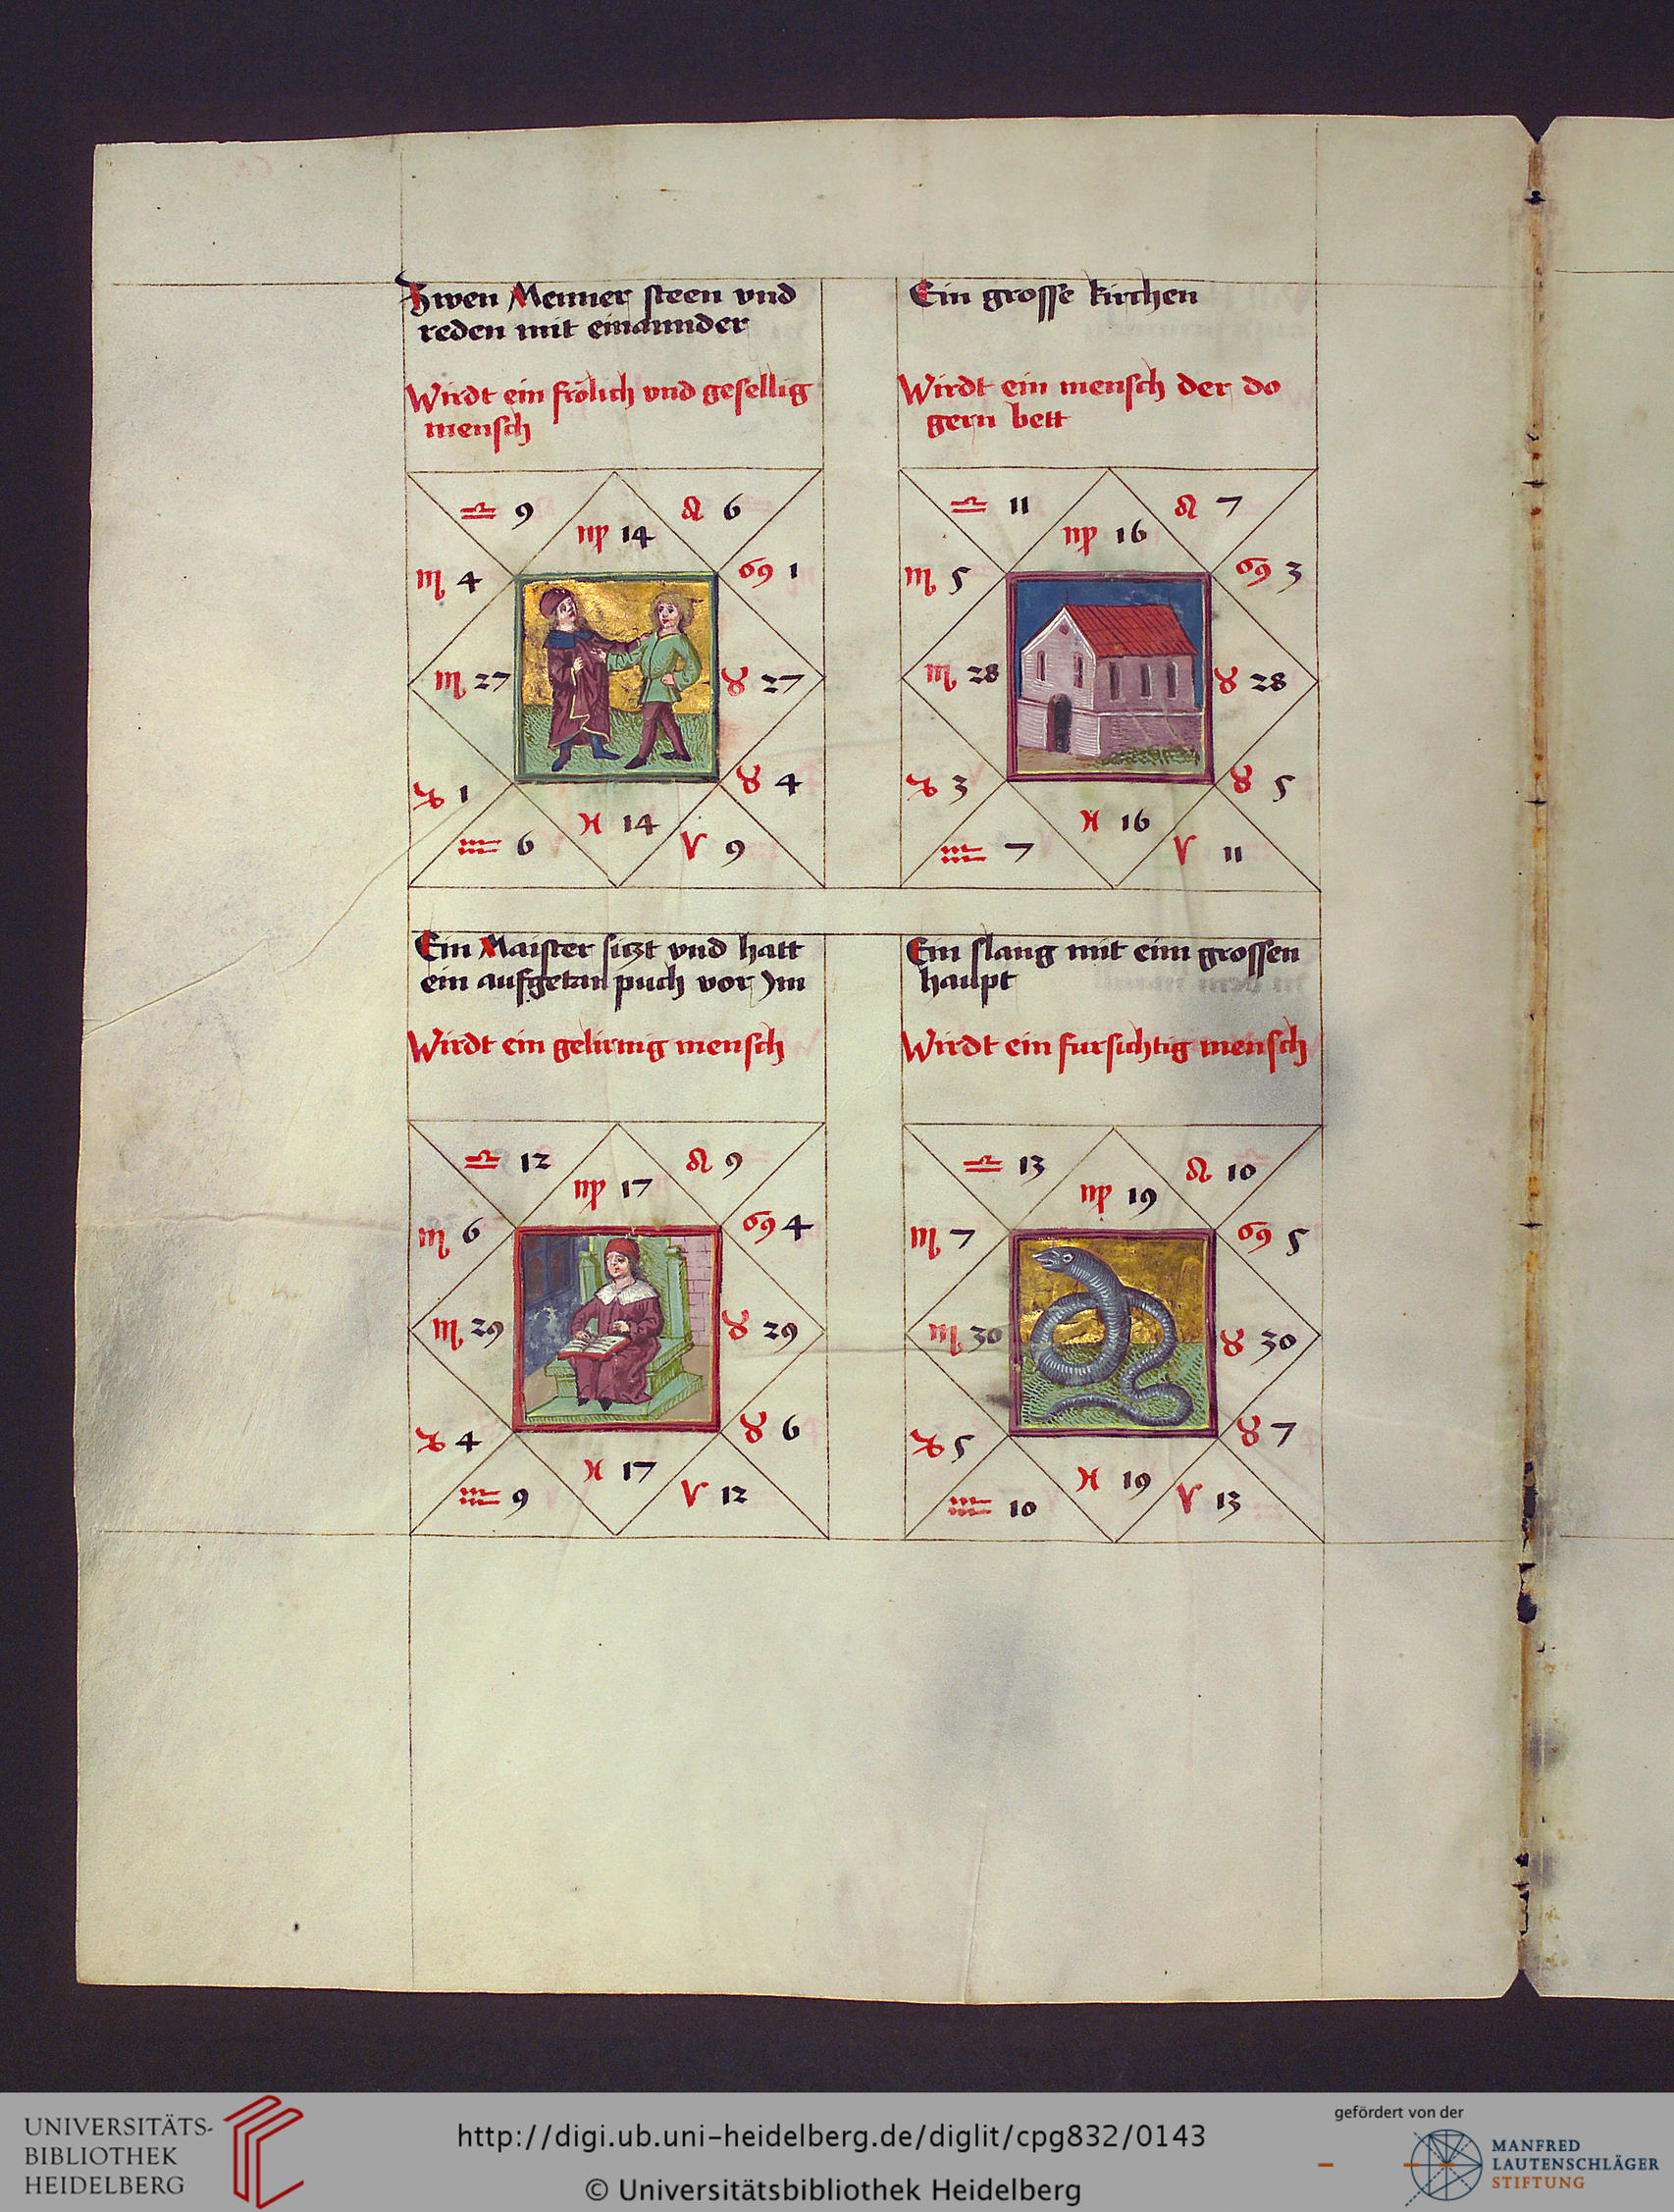 Zwen Menner steen vnd
reden mit einannder
Wirdt ein frölich vnd gesellig
mensch
♎ 9
♌ 6
♍ 14
♏ 4
♋ 1
♏ 27
♉ 27
♑ 1
♉ 4
♓ 14
♒ 6
♈ 9
Ein grosse kirchen
Wirdt ein mensch der do
gern bett
♎ 11
♌ 7
♍ 16
♏ 5
♋ 3
♏ 28
♉ 28
♑ 3
♉ 5
♓ 16
♒ 7
♈ 11
Ein Maister siczt vnd hatt
ein aufgetan puch vor Im
Wirdt ein gelirnig mensch
♎ 12
♌ 9
♍ 17
♏ 6
♋ 4
♏ 29
♉ 29
♑ 4
♉ 6
♓ 17
♒ 9
♈ 12
Ein slang mit eim grossen
haupt
Wirdt ein fursichtig mensch
♎ 13
♌ 10
♍ 19
♏ 7
♋ 5
♏ 30
♉ 30
♑ 5
♉ 7
♓ 19
♒ 10
♈ 13
UNIVERSITÄTS-
BIBLIOTHEK
HEIDELBERG
http://digi.ub.uni-heidelberg.de/diglit/cpg832/0143
© Universitätsbibliothek Heidelberg
gefördert von der
MANFRED
LAUTENSCHLÄGER
STIFTUNG